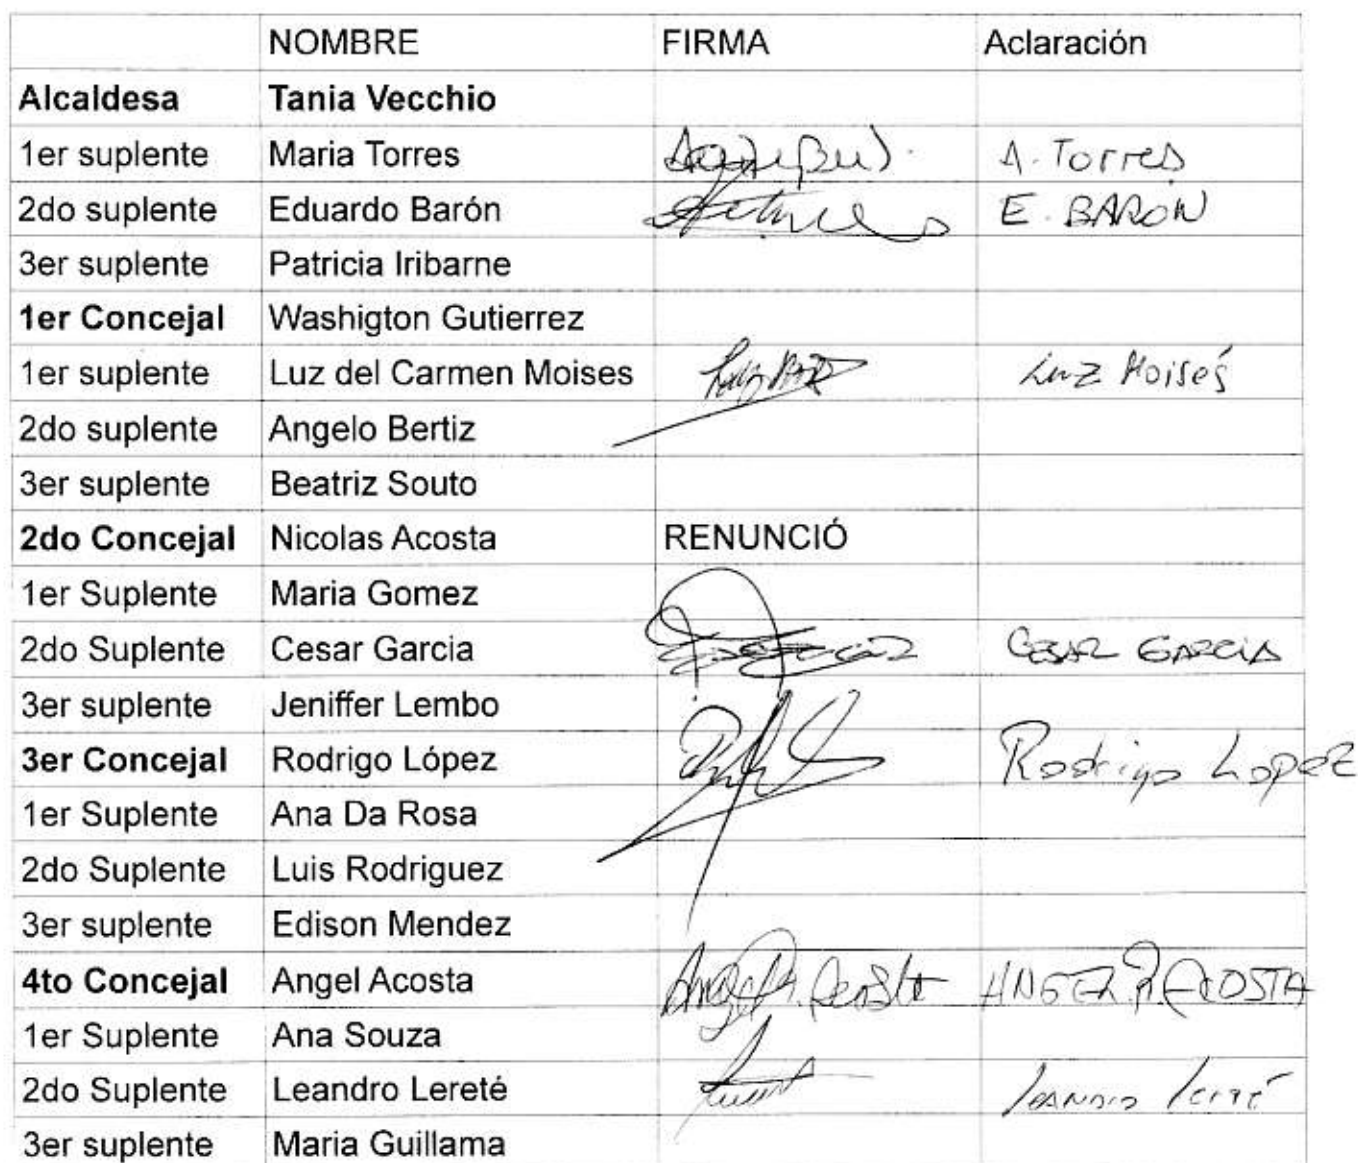 NOMBRE FIRMA Aclaración
Alcaldesa Tania Vecchio
1er suplente Maria Torres A. Torres
2do suplente Eduardo Barón E. BARON
3er suplente Patricia Iribarne
1er Concejal Washigton Gutierrez
1er suplente Luz del Carmen Moises Luz Moisés
2do suplente Angelo Bertiz
3er suplente Beatriz Souto
2do Concejal Nicolas Acosta RENUNCIÓ
1er Suplente Maria Gomez
2do Suplente Cesar Garcia CESAR GARCIA
3er suplente Jeniffer Lembo
3er Concejal Rodrigo López Rodrigo Lopez
1er Suplente Ana Da Rosa
2do Suplente Luis Rodriguez
3er suplente Edison Mendez
4to Concejal Angel Acosta Angel R. Acosta ANGEL R. ACOSTA
1er Suplente Ana Souza
2do Suplente Leandro Lereté Leandro Lereté
3er suplente Maria Guillama